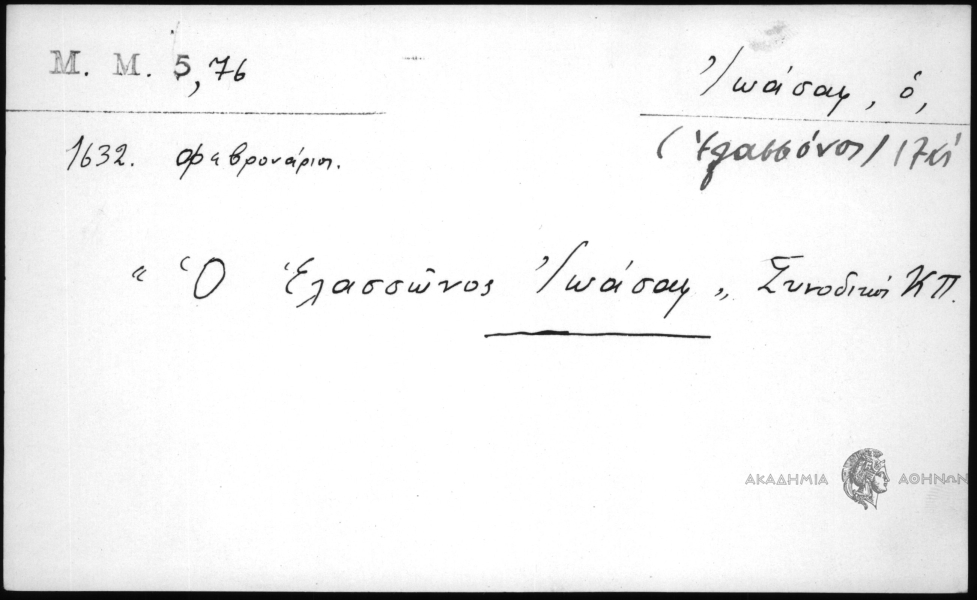 Μ. Μ. 5,76
Ἰωάσαφ, ὁ,
1632. Φεβρουάριοι.
(Ἐλασσόνος) 17 αἰ
“ Ὁ Ἐλασσῶνος Ἰωάσαφ „ Συνοδικοί ΚΠ.
ΑΚΑΔΗΜΙΑ ΑΘΗΝΩΝ